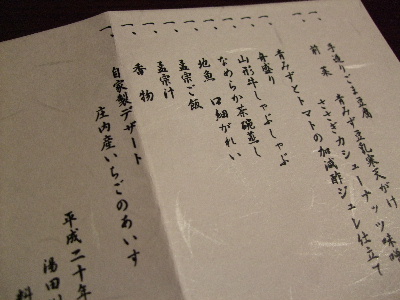 一、手造りごま豆腐 青みず豆乳寒天がけ
前菜 ささぎカシューナッツ味噌
一、青みずとトマトの加減酢ジュレ仕立て
一、舟盛り
一、山形牛しゃぶしゃぶ
一、なめらか茶碗蒸し
一、地魚 口細がれい
一、孟宗ご飯
一、孟宗汁
一、香物
一、自家製デザート
庄内産いちごのあいす
平成二十年
湯田川
料